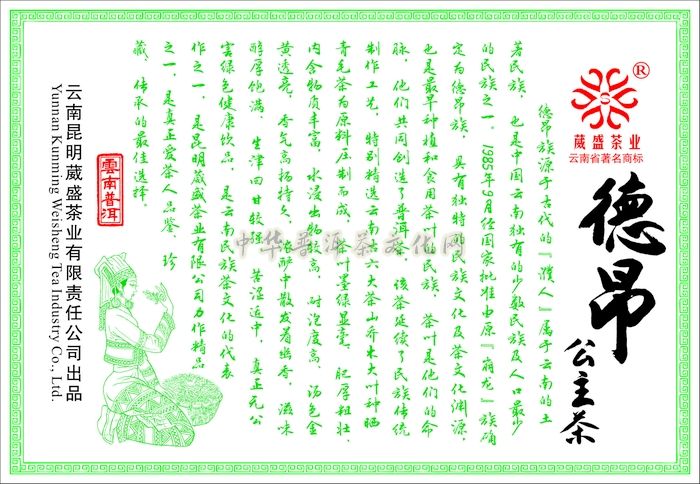 ®
葳盛茶业
云南省著名商标
德昂
公主茶
德昂族源于古代的『濮人』属于云南的土
著民族，也是中国云南独有的少数民族及人口最少
的民族之一，1985年9月经国家批准由原『崩龙』族确
定为德昂族，具有独特的民族文化及茶文化渊源，
也是最早种植和食用茶叶的民族，茶叶是他们的命
脉，他们共同创造了普洱茶，该茶延续了民族传统
制作工艺，特别精选云南古六大茶山乔木大叶种晒
青毛茶为原料压制而成，茶叶墨绿显毫，肥厚粗壮，
内含物质丰富，水浸出物较高，耐泡度高，汤色金
黄透亮，香气高拓持久，浓酽中散发着幽香，滋味
醇厚饱满，生津回甘较强，苦湿适中，真正无公
害绿色健康饮品，是云南民族茶文化的代表
作之一，是昆明葳盛茶业有限公司力作精品
之一，是真正爱茶人品鉴，珍
藏，传承的最佳选择。
雲南普洱
云南昆明葳盛茶业有限责任公司出品
Yunnan Kunming Weisheng Tea Industry Co., Ltd.
中华普洱茶文化网